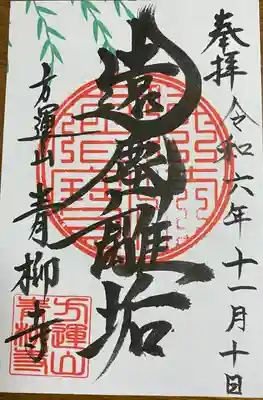 奉拝 令和六年十一月十日
遠塵離垢
方運山 青柳寺
方運山
青柳寺